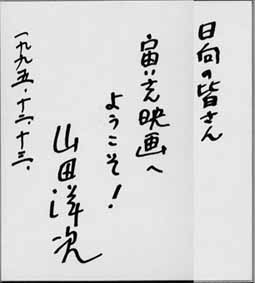 日向の皆さん
映画へ
ようこそ!
山田洋次
一九九五.十二.十三.